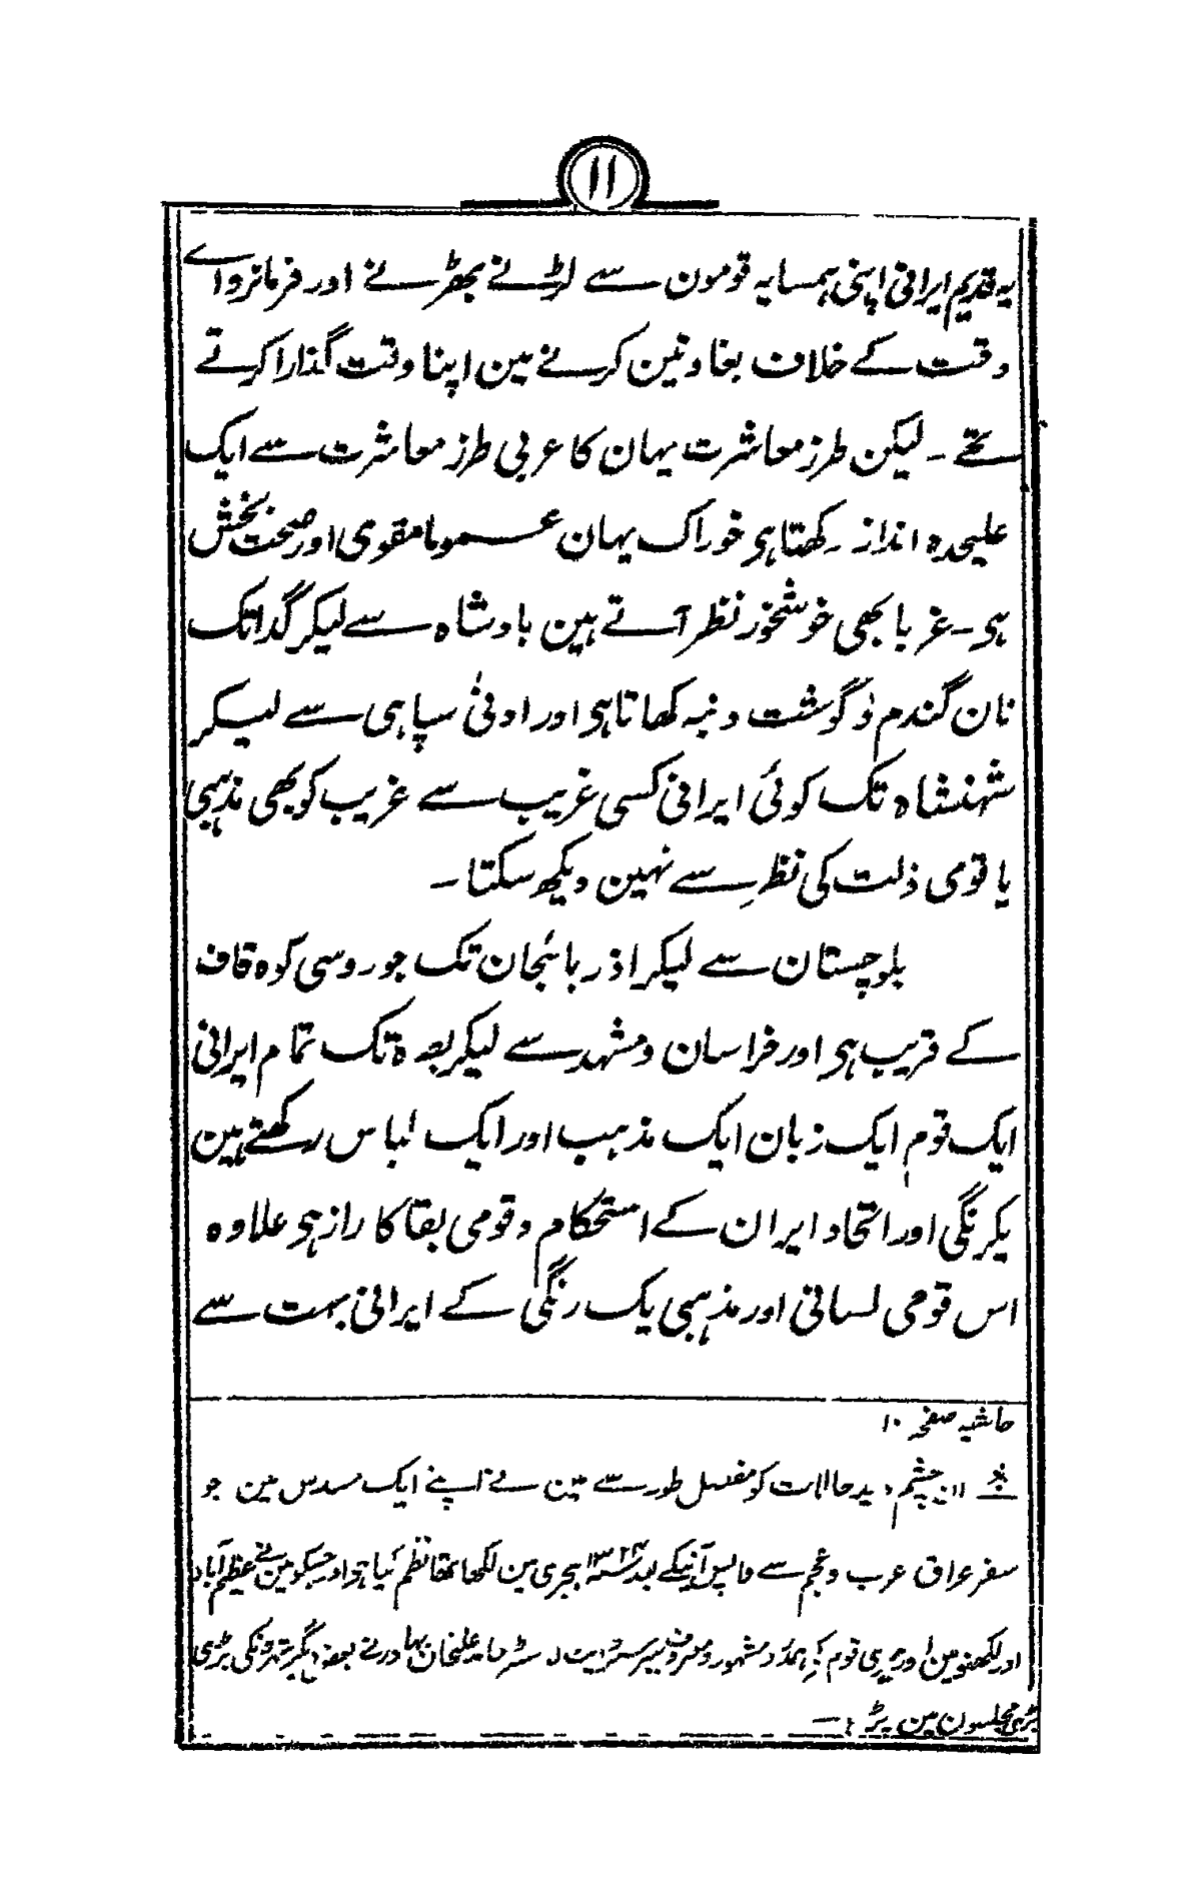 ۱۱
یہ قدیم ایرانی اپنی ہمسایہ قومون سے لڑنے بھڑنے اور فرمانرواے
وقت کے خلاف بغاوتین کرنے مین اپنا وقت گذارا کرتے
تھے ۔ لیکن طرز معاشرت یہان کا عربی طرز معاشرت سے ایک
علیحدہ انداز رکھتا ہی خوراک یہان عموما مقوی اور صحت بخش
ہی ۔ غربا بھی خوشخور نظر آتے ہین بادشاہ سے لیکر گدا تک
نان گندم و گوشت دنبہ کھاتا ہی اور ادنیٰ سپاہی سے لیکر
شہنشاہ تک کوئی ایرانی کسی غریب سے غریب کو بھی مذہبی
یا قومی ذلت کی نظر سے نہین دیکھ سکتا ۔
بلوچستان سے لیکر اذربائجان تک جو روسی کوہ قاف
کے قریب ہی اور خراسان و مشہد سے لیکر بصرہ تک تمام ایرانی
ایک قوم ایک زبان ایک مذہب اور ایک لباس رکھتے ہین
یکرنگی اور اتحاد ایران کے استحکام و قومی بقا کا راز ہی علاوہ
اس قومی لسانی اور مذہبی یک رنگی کے ایرانی بہت سے
حاشیہ صفحہ ۱۰
ان چشم دید حالات کو مفصل طور سے مین نے اپنے ایک مسدس مین جو
سفر عراق عرب و عجم سے واپس آنیکے بعد ۱۳۲۳ ہجری مین لکھا تھا نظم کیا ہی اور جسکو مین نے عظیم آباد
اور لکھنو مین اور میری قوم کے ہمدرد مشہور و معروف بیرسٹر مسٹر حامد علیخان بہادر نے بعض دیگر شہرونکی بڑی
بڑی مجلسون مین پڑہا ۔